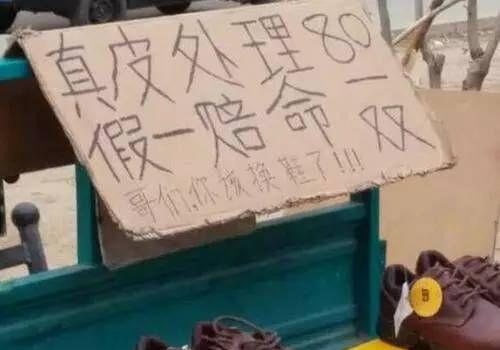 真皮处理80
假一赔命一双
哥们,你该换鞋了!!!